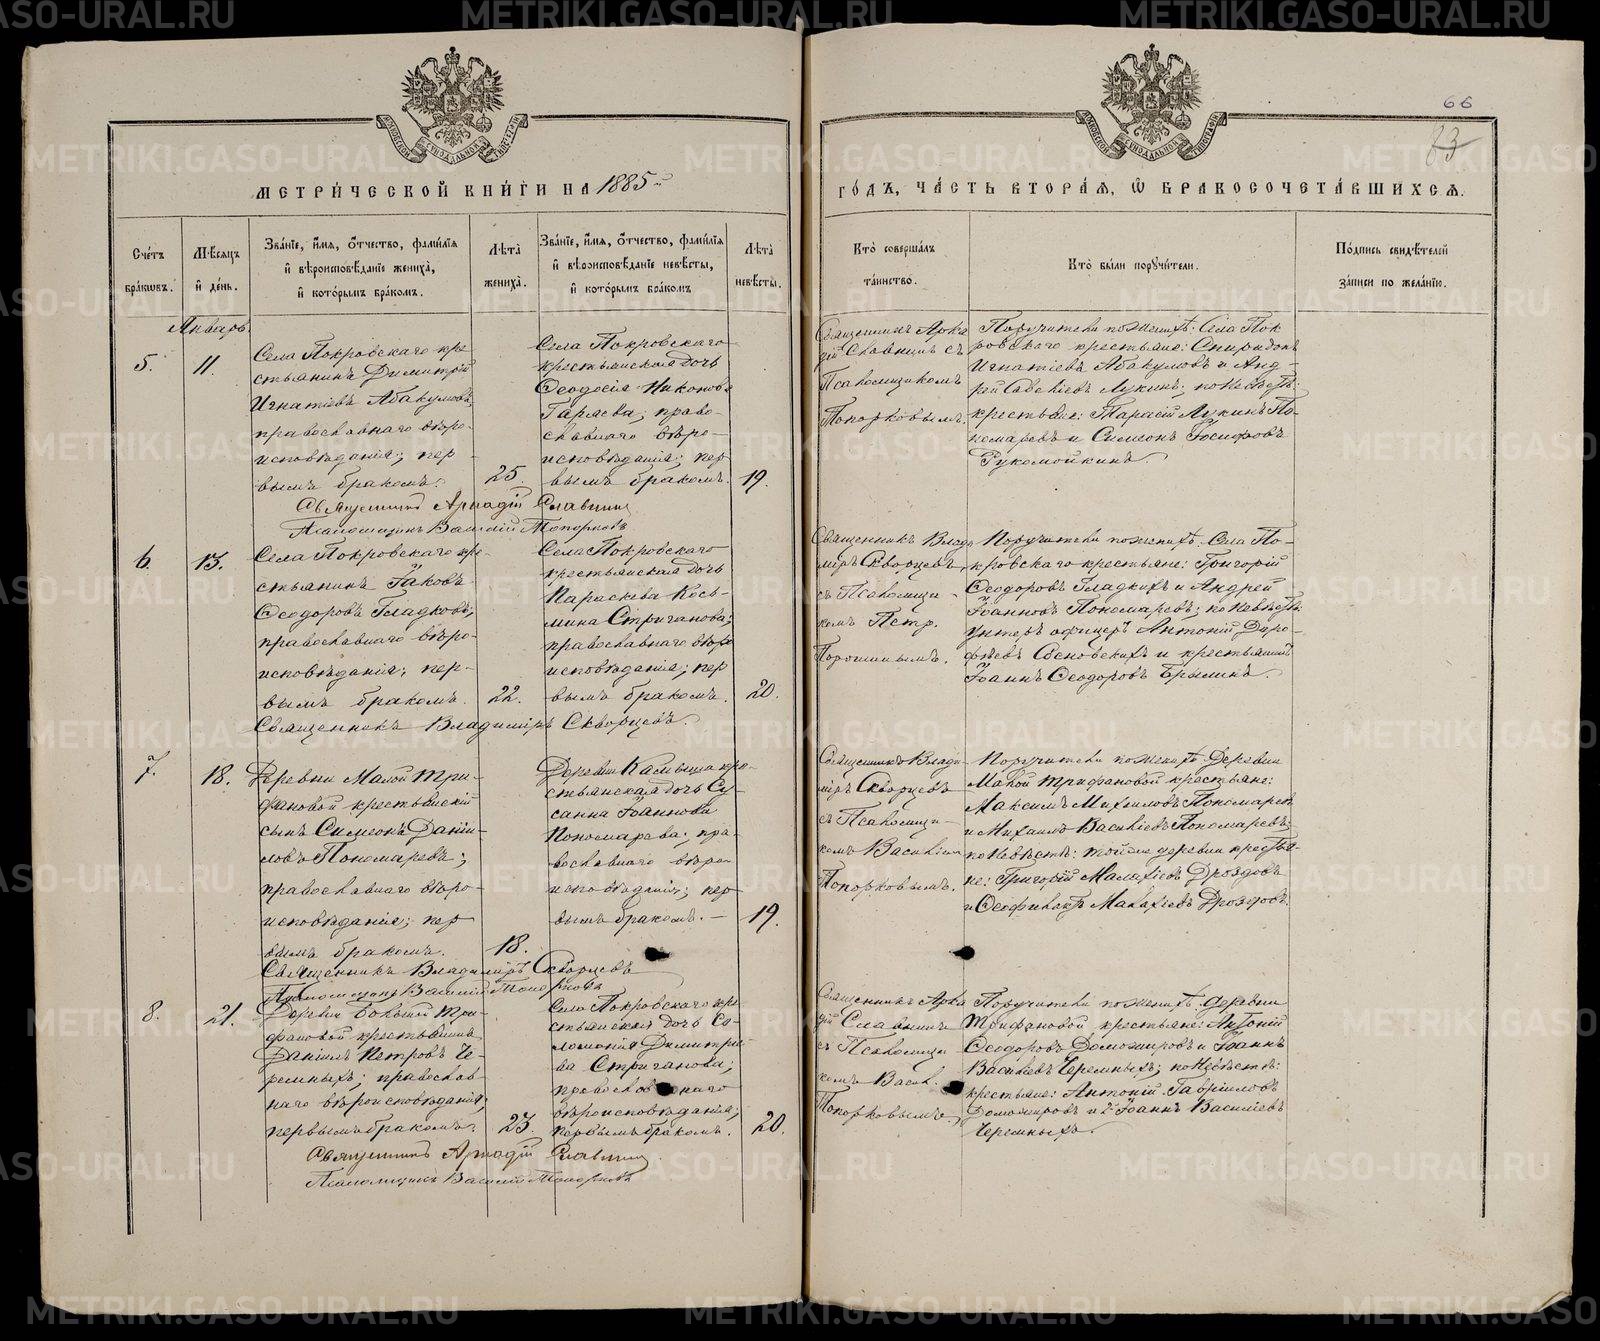 METRIKI.GASO-URAL.RU
66
83
МЕТРИ́ЧЕСКОЙ КНИ́ГИ НА 1885й
ГО́ДЪ, ЧА́СТЬ ВТОРА́Я, Ѽ БРАКОСОЧЕТА́ВШИХСЯ.
Сче́тъ бра́кωвъ.
Мѣ́сяцъ и҆ де́нь.
Зва́нїе, и҆́мя, ѻ҆́тчество, фами́лїя
и҆ вѣроисповѣ́данїе жениха̀,
и҆ кото́рымъ бра́комъ.
Лѣ́та жениха̀.
Зва́нїе, и҆́мя, ѻ҆́тчество, фами́лїя
и҆ вѣроисповѣ́данїе невѣ́сты,
и҆ кото́рымъ бра́комъ
Лѣ́та невѣ́сты.
Кто̀ соверша́лъ
та́инство.
Кто̀ бы́ли порꙋчи́тели.
По́дпись свидѣ́телей
за́писи по жела́нїю.
Январь
5.
11.
Села Покровскаго кре-
стьянинъ Димитрій
Игнатіевъ Абакумовъ,
православнаго вѣро-
исповѣданія; пер-
вымъ бракомъ.
25.
Села Покровскаго
крестьянская дочь
Ѳеодосія Никонова
Гаряева; право-
славнаго вѣро-
исповѣданія; пер
вымъ бракомъ.
19.
Священникъ Арка
дій Славнинъ съ
Псаломщикомъ
Топорковымъ.
Поручители по женихѣ: Села Пок
ровскаго крестьяне: Спиридонъ
Игнатіевъ Абакумовъ и Анд-
рей Савеліевъ Лукинъ; по невѣстѣ:
крестьяне: Тарасій Лукинъ По-
номаревъ и Симеонъ Іосифовъ
Рукомойкинъ.
Священникъ Аркадій Славнинъ
Псаломщикъ Василій Топорковъ
6.
13.
Села Покровскаго кре-
стьянинъ Іаковъ
Ѳеодоровъ Гладковъ;
православнаго вѣро-
исповѣданія; пер-
вымъ бракомъ.
22.
Села Покровскаго
крестьянская дочь
Параскева Кось-
мина Стриганова;
православнаго вѣро
исповѣданія; пер
вымъ бракомъ.
20.
Священникъ Влади
міръ Скворцевъ
съ Псаломщи-
комъ Петр.
Порошинымъ.
Поручители по женихѣ: Села По-
кровскаго крестьяне: Григорій
Ѳеодоровъ Гладкихъ и Андрей
Іоанновъ Пономаревъ; по невѣстѣ:
унтеръ офицеръ Антоній Доро-
фѣевъ Сосновскихъ и крестьянинъ
Іоаннъ Ѳеодоровъ Брылинъ.
Священникъ Владиміръ Скворцевъ.
7.
18.
Деревни Малой Три-
фановой крестьянскій
сынъ Симеонъ Даніи-
ловъ Пономаревъ;
православнаго вѣро-
исповѣданія; пер
вымъ бракомъ.
18.
Деревни Камыша кре-
стьянская дочь Су-
санна Іоаннова
Пономарева; пра-
вославнаго вѣро
исповѣданія; пер
вымъ бракомъ.
19.
Священникъ Влади
міръ Скворцевъ
съ Псаломщи-
комъ Василіем
Топорковымъ.
Поручители по женихѣ: Деревни
Малой Трифановой крестьяне:
Максимъ Михаиловъ Пономаревъ
и Михаилъ Василіевъ Пономаревъ;
по невѣстѣ: той же деревни крестья-
не: Григорій Малахіевъ Дроздовъ
и Ѳеофилактъ Малахіевъ Дроздовъ.
Священникъ Владиміръ Скворцевъ
Псаломщикъ Василій Топорковъ
8.
21.
Деревни Большой Три-
фановой крестьянинъ
Даніилъ Петровъ Че-
ремныхъ; православ-
наго вѣроисповѣданія;
первымъ бракомъ.
23.
Села Покровскаго кре-
стьянская дочь Со-
ломонія Димитріе-
ва Стриганова;
православнаго
вѣроисповѣданія;
первымъ бракомъ.
20.
Священникъ Арка
дій Славнинъ
съ Псаломщи
комъ Васил.
Топорковымъ.
Поручители по женихѣ: деревни
Трифановой крестьяне: Антоній
Ѳеодоровъ Доможировъ и Іоаннъ
Василіевъ Черемныхъ; по невѣстѣ:
крестьяне: Антоній Гавріиловъ
Доможировъ и 2й Іоаннъ Василіевъ
Черемныхъ.
Священникъ Аркадій Славнинъ
Псаломщикъ Василій Топорковъ